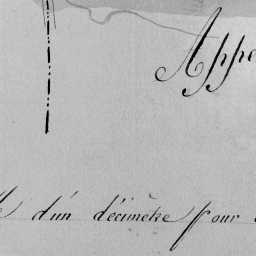 Appe
d'un décimètre pour